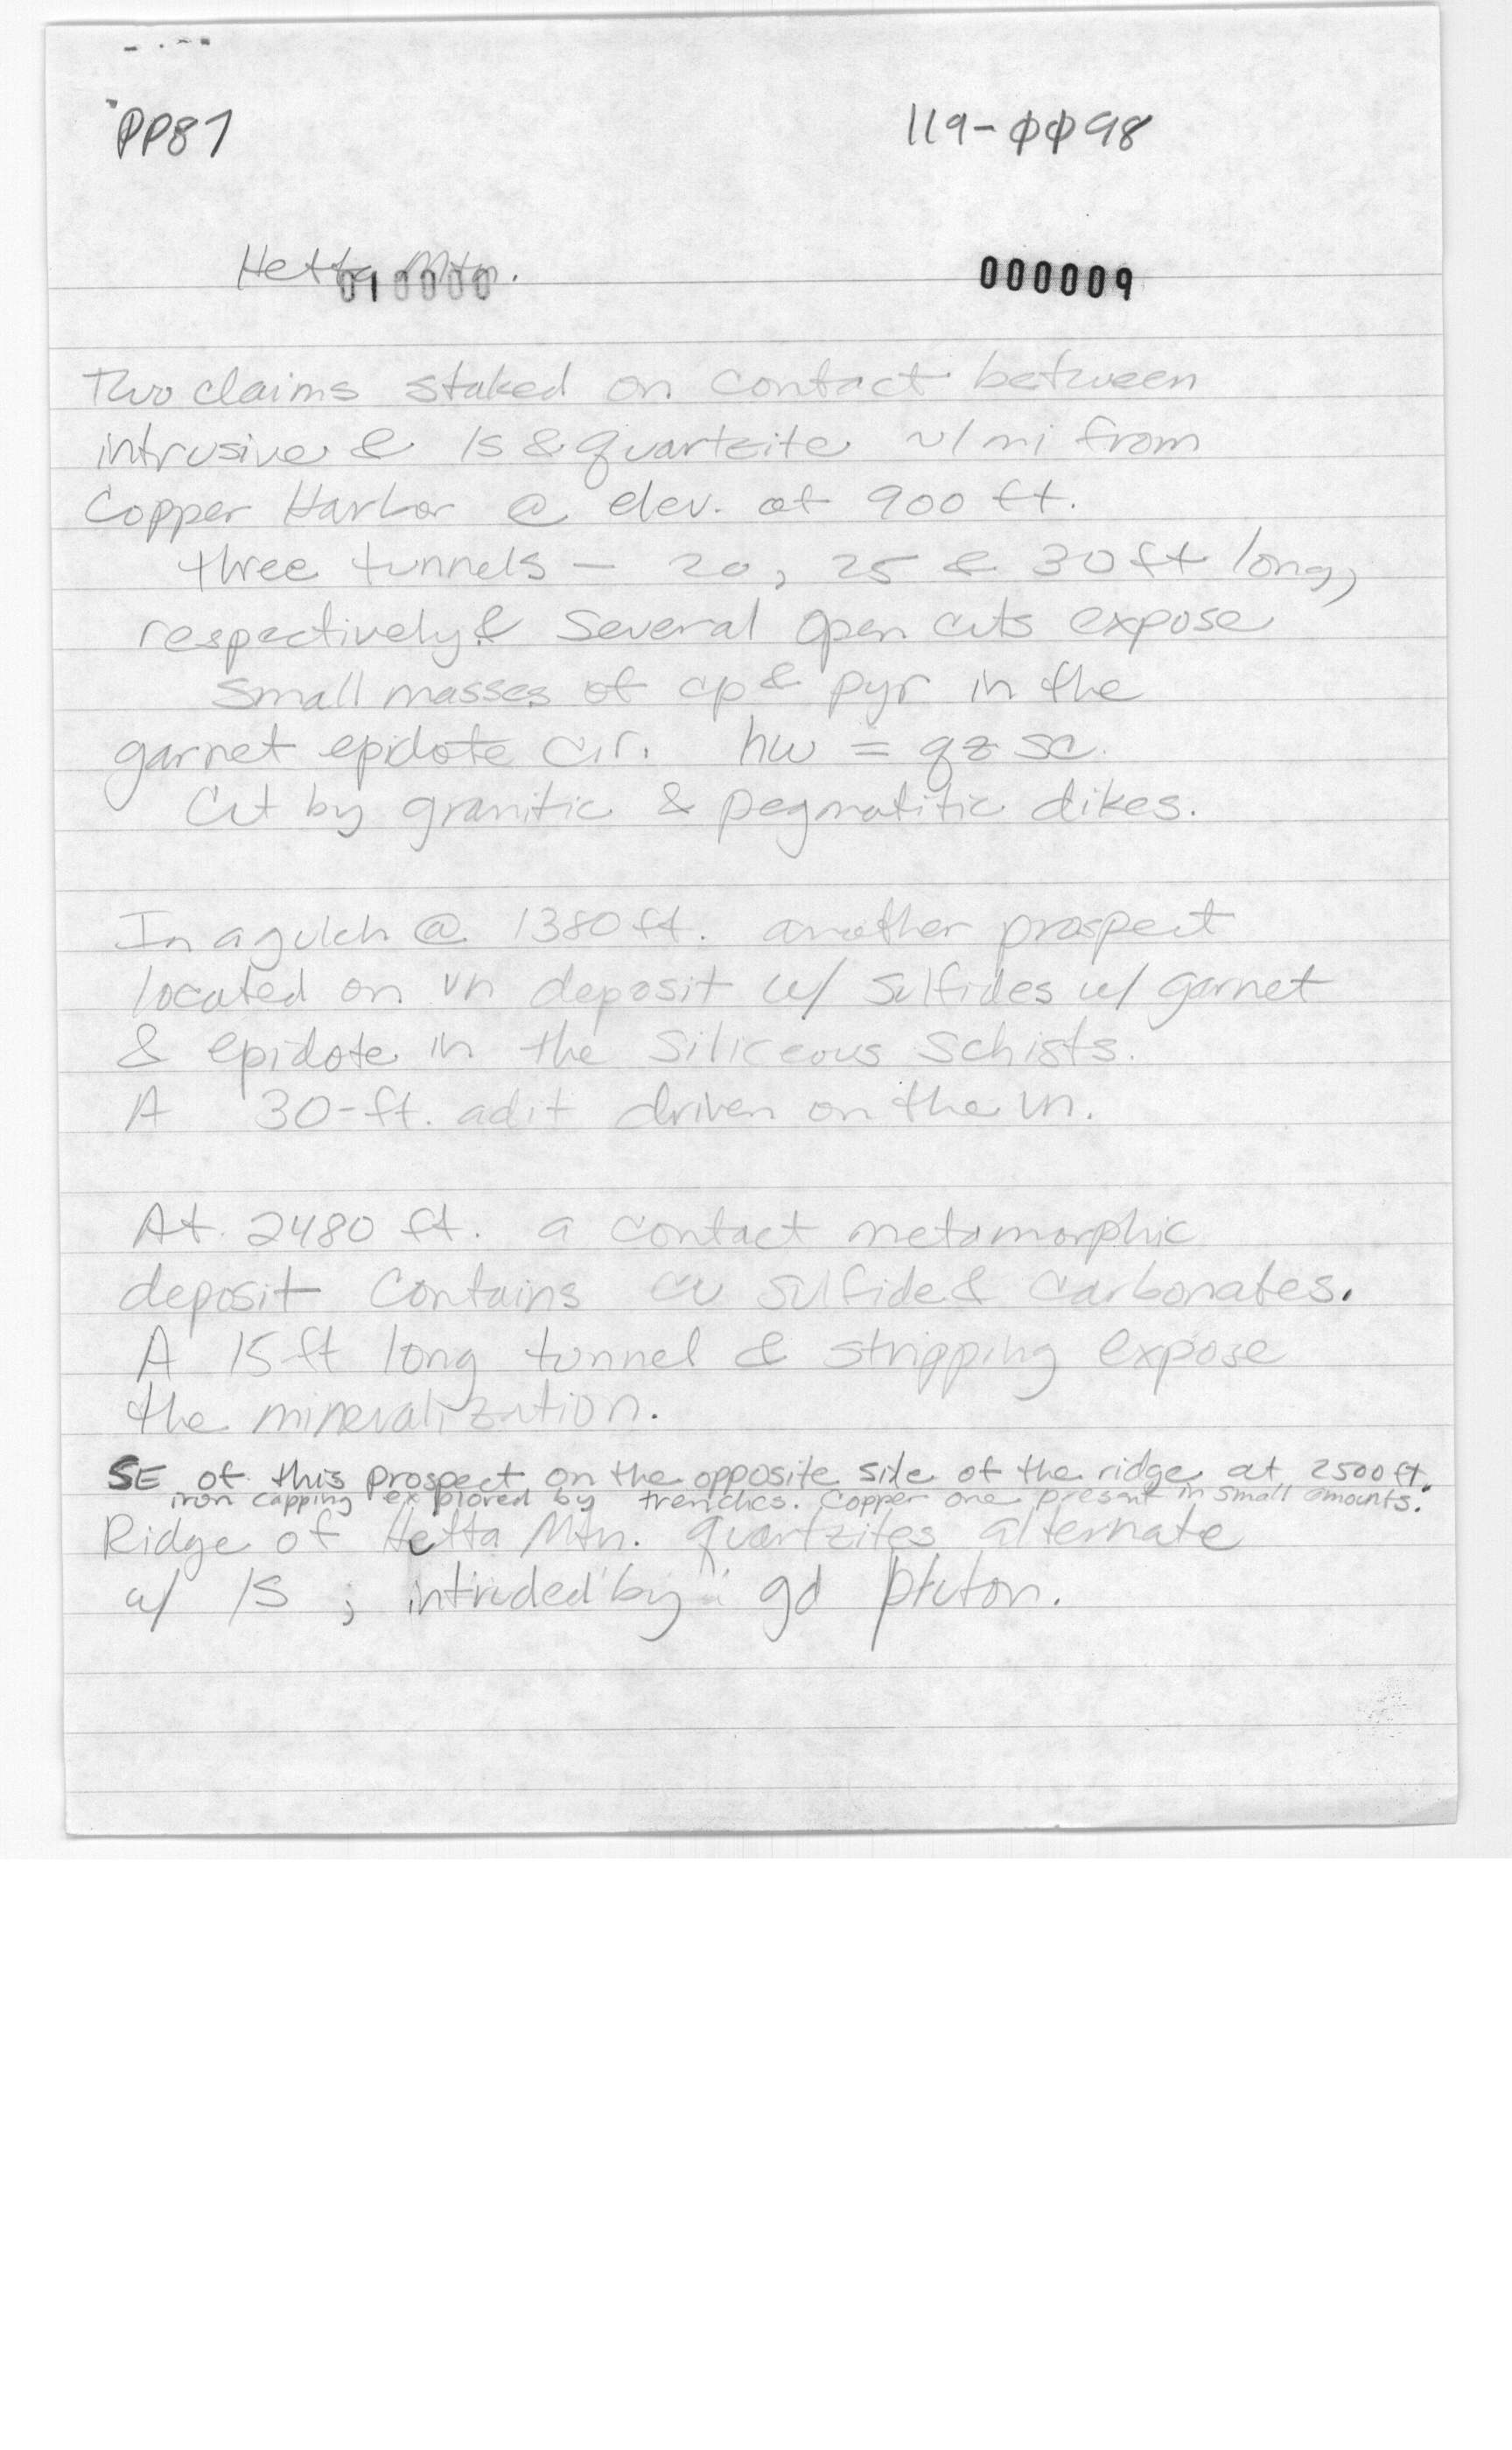 PP87 119-ØØ98
Hetta Mtn.
010000 000009
Two claims staked on contact between
intrusive & ls & quartzite ~1 mi from
Copper Harbor @ elev. of 900 ft.
three tunnels - 20, 25 & 30 ft long,
respectively & several open cuts expose
small masses of cp & pyr in the
garnet epidote c.r. hw = qz sc.
Cut by granitic & pegmatitic dikes.
In a gulch @ 1380 ft. another prospect
located on vn deposit w/ sulfides w/ garnet
& epidote in the siliceous schists.
A 30-ft. adit driven on the vn.
At 2480 ft. a contact metamorphic
deposit contains cu sulfide & carbonates.
A 15 ft long tunnel & stripping expose
the mineralization.
SE of this prospect on the opposite side of the ridge at 2500 ft.
iron capping explored by trenches. Copper ore present in small amounts.
Ridge of Hetta Mtn. quartzites alternate
w/ ls ; intruded by gd pluton.